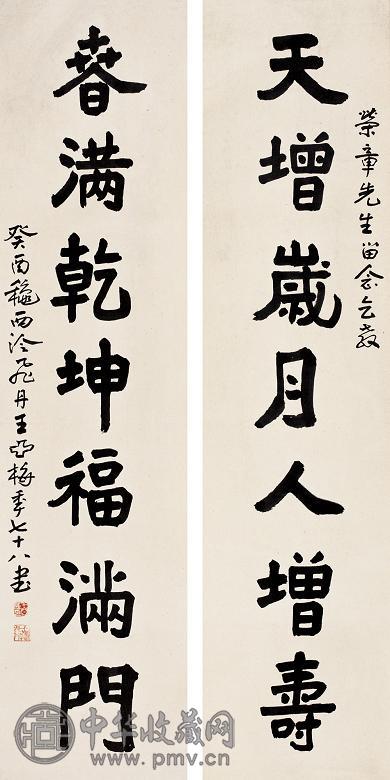 榮章先生留念乞教
天增歲月人增壽
春满乾坤福滿門
癸酉穐西泠飛丹王亞梅年七十八書
中华收藏网
www.pmv.cn